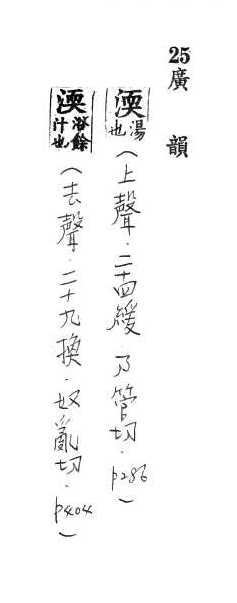 25廣韻
渜湯也(上聲.二十四緩.乃管切.p286)
渜浴餘汁也(去聲.二十九換.奴亂切.p404)